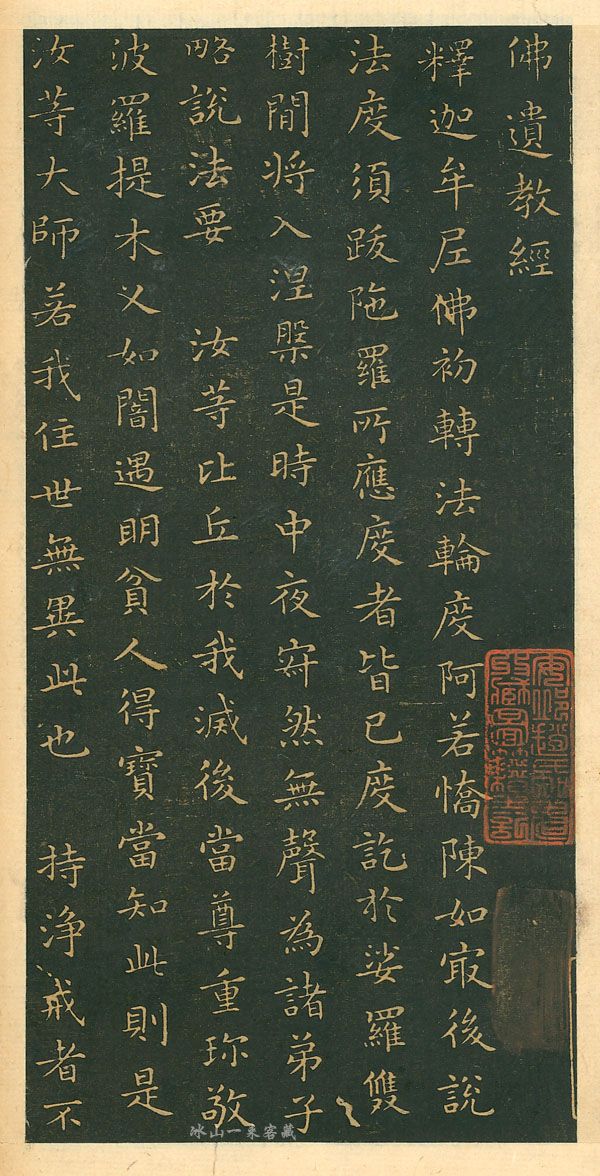 佛遺教經
釋迦牟尼佛初轉法輪度阿若憍陳如冣後說
法度須跋陁羅所應度者皆已度訖於娑羅雙
樹間將入涅槃是時中夜寂然無聲為諸弟子
略說法要　汝等比丘於我滅後當尊重珎敬
波羅提木叉如闇遇明貧人得寶當知此則是
汝等大師若我住世無異此也　持淨戒者不
冰山一来客藏